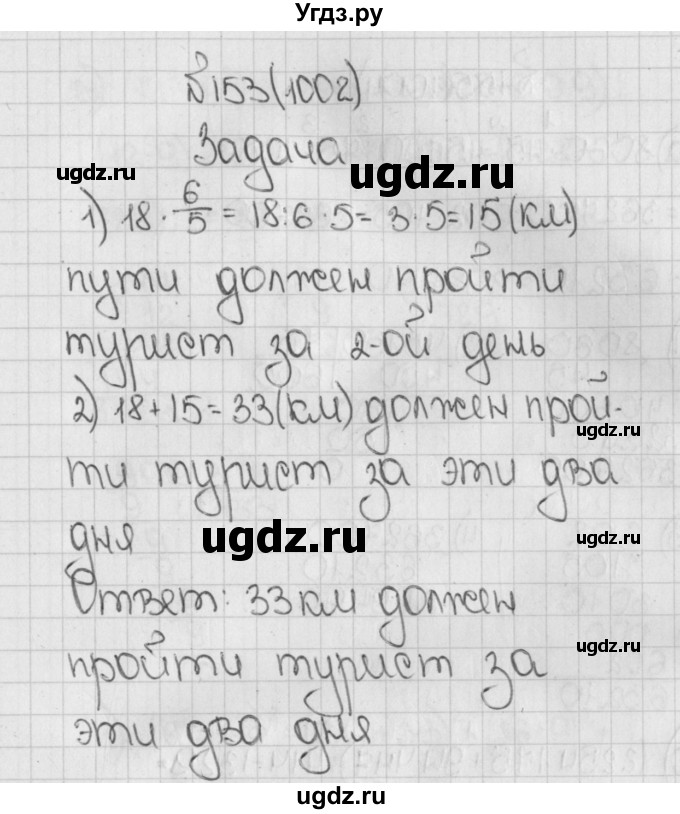 Угдз.ру
№153(1002)
Задача
ugdz.ru
ugdz.ru
1) 18 · 6/5 = 18:6·5= 3·5=15(км)
пути должен пройти
турист за 2-ой день
2) 18+15=33(км) должен прой-
ти турист за эти два
дня
ugdz.ru
Ответ: 33км должен
ugdz.ru
пройти турист за
эти два дня
ugdz.ru
ugdz.ru